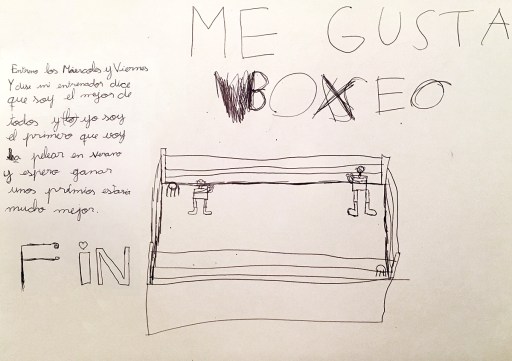 ME GUSTA
BOXEO
Entreno los Miercoles y Viernes
Y dise mi entrenador dice
que soy el mejor de
todos y yo soy
el primero que voy
a pelear en verano
y espero ganar
unos prémios estaría
mucho mejor.
FiN